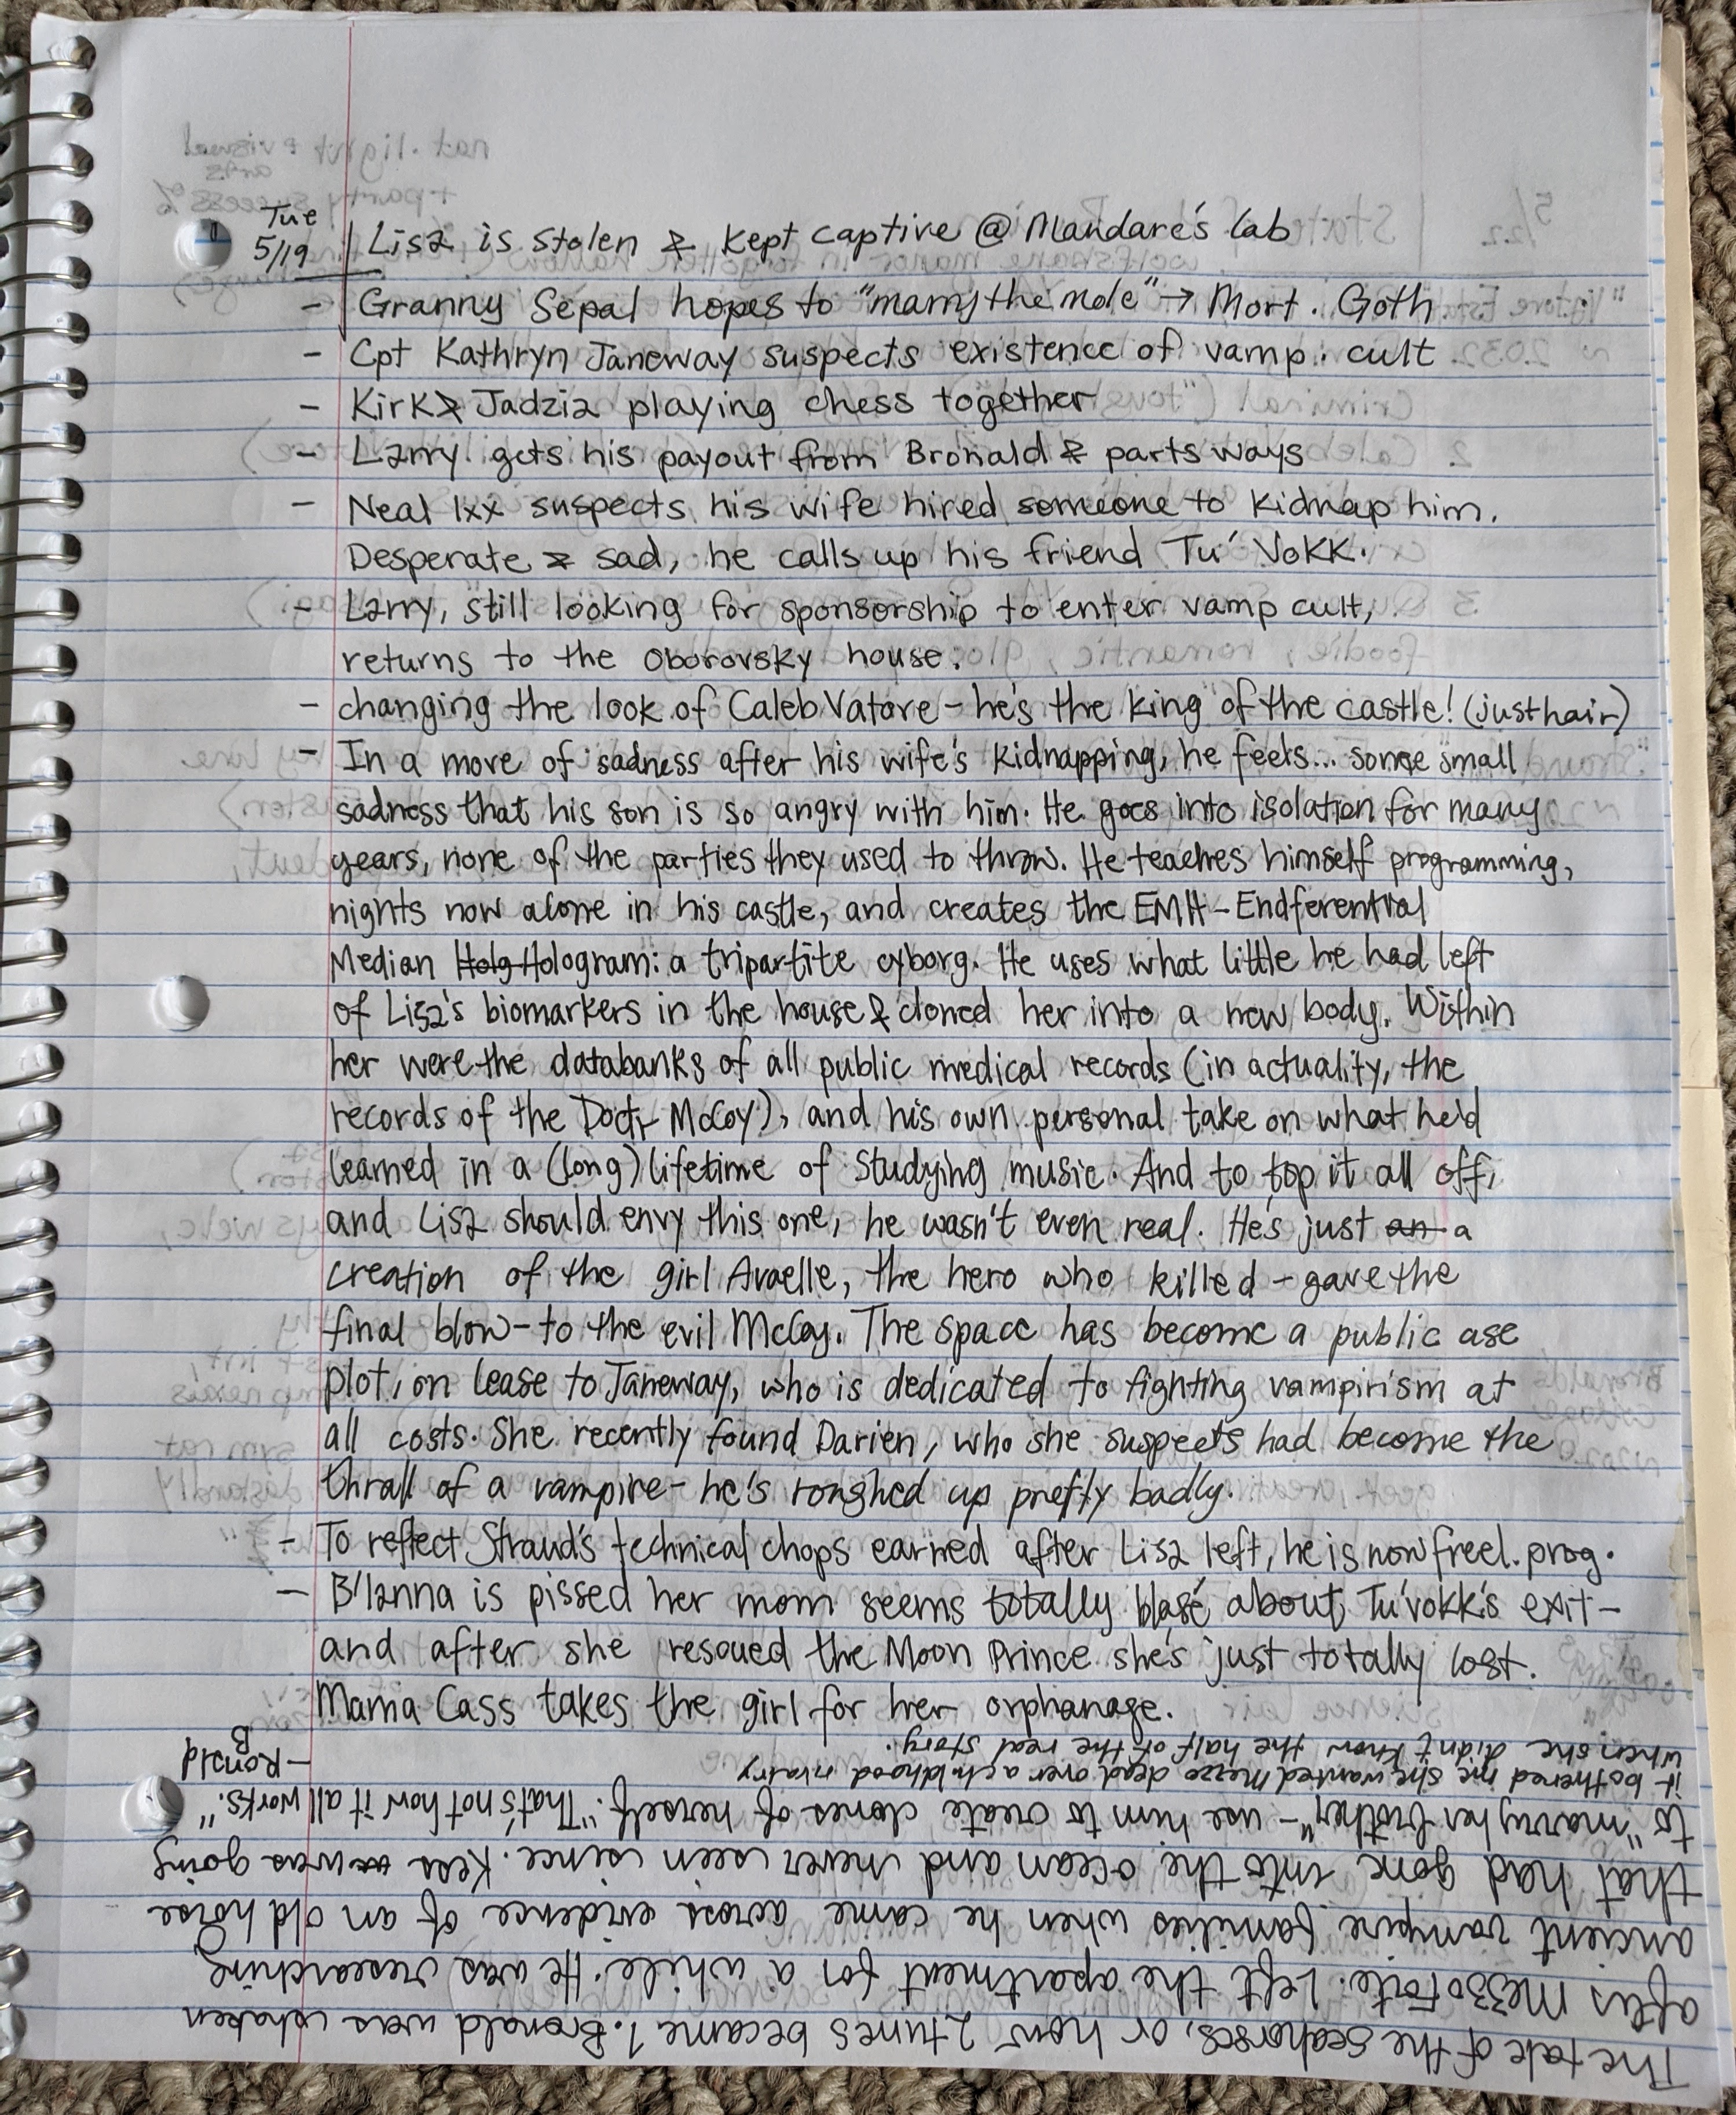 Tue
5/19
Lisa is stolen & kept captive @ Mandare's lab
- Granny Sepal hopes to "marry the mole" → Mort. Goth
- Cpt Kathryn Janeway suspects existence of vamp. cult
- Kirk & Jadzia playing chess together
- Larry gets his payout from Bronald & parts ways
- Neal Ixx suspects his wife hired someone to kidnap him.
Desperate & sad, he calls up his friend Tu'Vokk.
- Larry, still looking for sponsorship to enter vamp cult,
returns to the Oborovsky house.
- changing the look of Caleb Vatore - he's the king of the castle! (just hair)
- In a move of sadness after his wife's kidnapping, he feels... some small
sadness that his son is so angry with him. He goes into isolation for many
years, none of the parties they used to throw. He teaches himself programming,
nights now alone in his castle, and creates the EMH - Endferential
Median Holg Hologram: a tripartite cyborg. He uses what little he had left
of Lisa's biomarkers in the house & cloned her into a new body. Within
her were the databanks of all public medical records (in actuality, the
records of the Doctr McCoy), and his own personal take on what he'd
learned in a (long) lifetime of studying music. And to top it all off,
and Lisa should envy this one, he wasn't even real. He's just an a
creation of the girl Avaelle, the hero who killed - gave the
final blow - to the evil McCoy. The space has become a public use
plot, on lease to Janeway, who is dedicated to fighting vampirism at
all costs. She recently found Darien, who she suspects had become the
thrall of a vampire - he's roughed up pretty badly.
- To reflect Straud's technical chops earned after Lisa left, he is now freel. prog.
- B'lanna is pissed her mom seems totally blasé about Tu'vokk's exit -
and after she rescued the Moon Prince she's just totally lost.
Mama Cass takes the girl for her orphanage.
The tale of the Seahorses, or how 2 tunes became 1. Bronald was shaken
after Mezzo Forte left the apartment for a while. He was researching
ancient vampire families when he came across evidence of an old horse
that had gone into the ocean and never seen since. Kess was going
to "marry her brother" - use him to create clones of herself. "That's not how it all works."
it bothered me she wanted Mezzo dead over a childhood rivalry
when she didn't know the half of the real story.
- Ronald
B